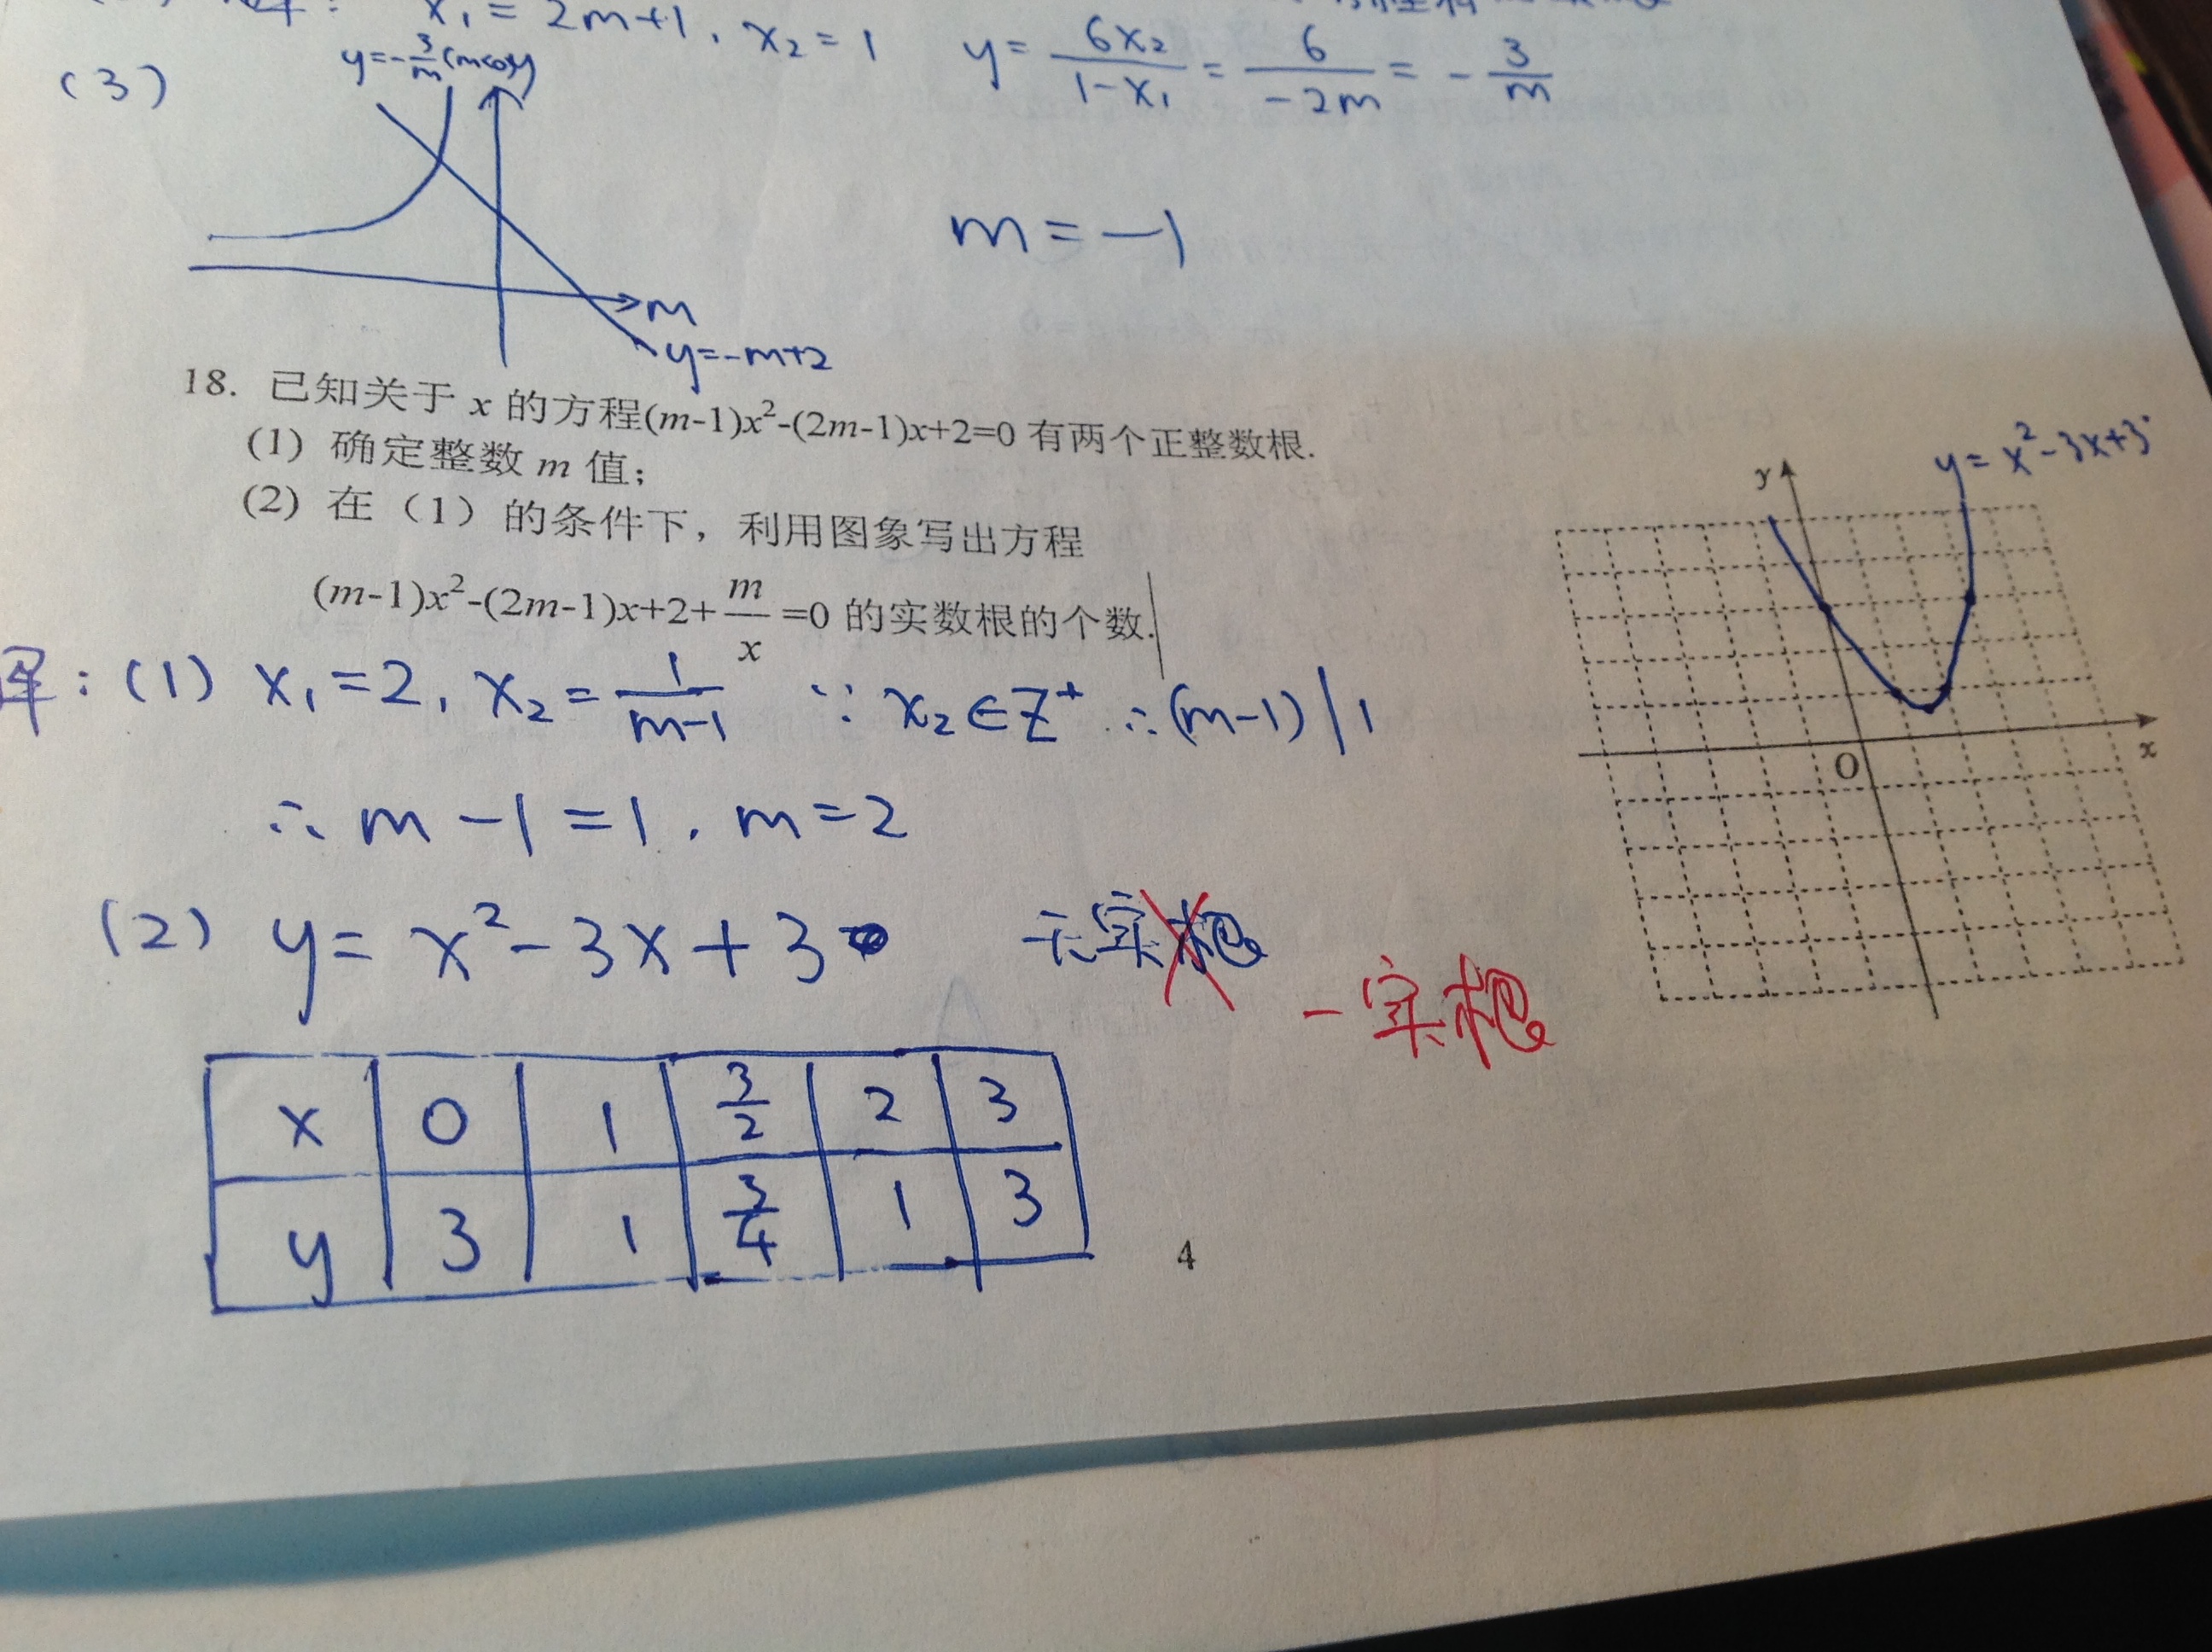 x₁=2m+1, x₂=1
(3)
y=-3/m (m<0) y
y=6x₂/(1-x₁)=6/(-2m)=-3/m
m=-1
m
y=-m+2
18. 已知关于 x 的方程(m-1)x²-(2m-1)x+2=0 有两个正整数根.
(1) 确定整数 m 值;
(2) 在（1）的条件下，利用图象写出方程
(m-1)x²-(2m-1)x+2+m/x=0 的实数根的个数.
y
y=x²-3x+3
O
x
解：(1) x₁=2, x₂=1/(m-1) ∵ x₂∈Z⁺ ∴(m-1)|1
∴ m-1=1, m=2
(2) y=x²-3x+3 无实根
一实根
x 0 1 3/2 2 3
y 3 1 3/4 1 3
4